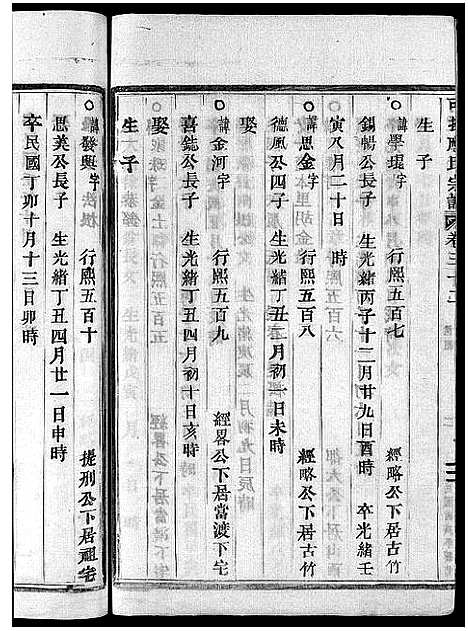 生 子
○諱學堤字 行熙五百七 經略公下居古竹
錫暢公長子 生光緒丙子十二月廿九日酉時 卒光緒壬
寅八月二十日 時
○諱思金字 行熙五百八 經略公下居古竹
德風公四子 生光緒丁丑二月初一日未時
娶
○諱金河字 行熙五百九 經畧公下居當渡下宅
喜銑公長子 生光緒丁丑四月初十日亥時
娶
生 子
○諱發興字 行熙五百十 提刑公下居祖宅
思美公長子 生光緒丁丑四月廿一日申時
卒民國丁卯十月十三日卯時